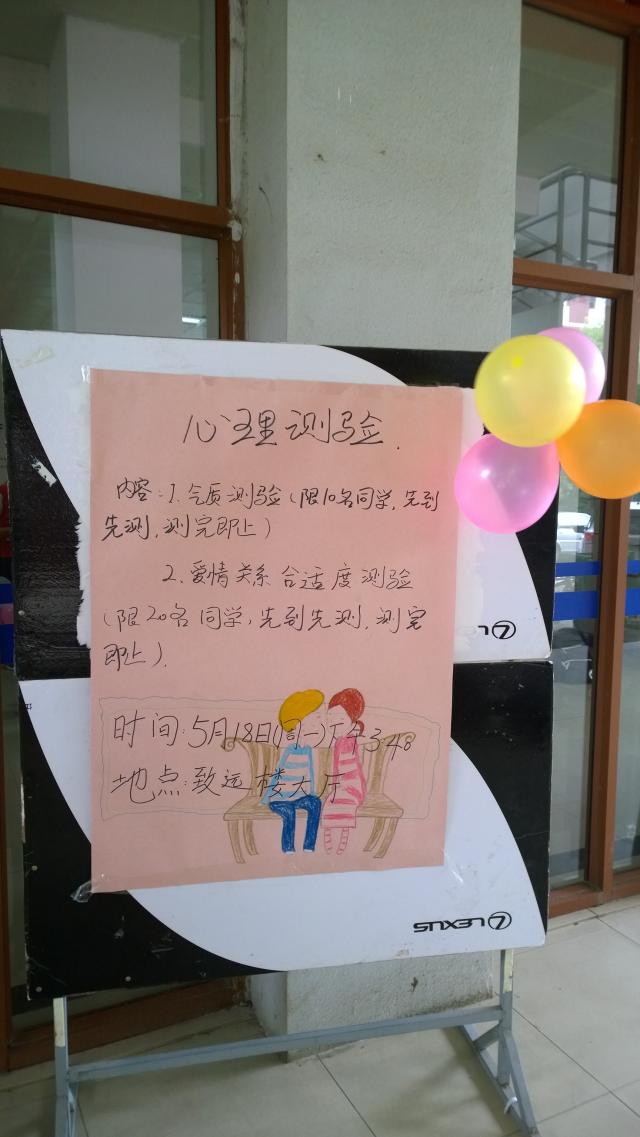 心理测验.
内容:1.气质测验(限10名同学,先到
先测,测完即止)
2.爱情关系合适度测验
(限20名同学,先到先测,测完
即止).
时间:5月18日(周一)下午
地点:致远楼大厅
LEXUS